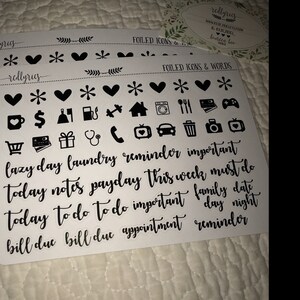 rollyrus
FOILED ICONS &
rollyrus
FOILED ICONS & WORDS
lazy day laundry reminder important
today notes payday this week must do
today to do to do important family date
day night
bill due bill due appointment reminder